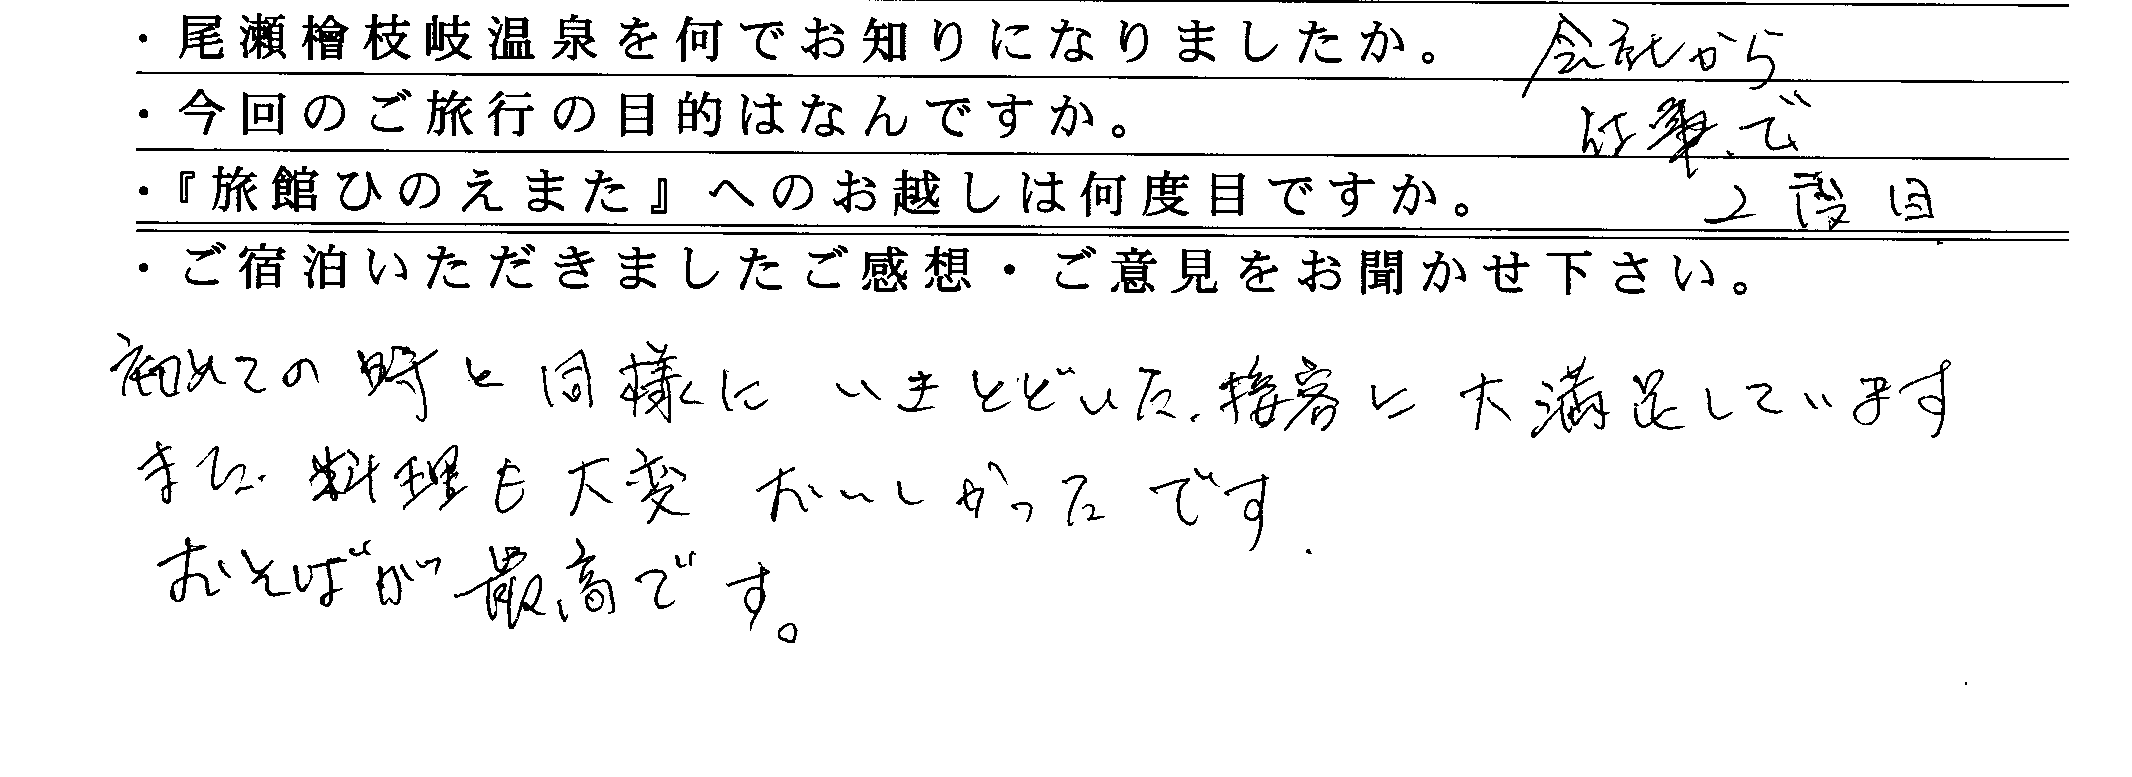 ・尾瀬檜枝岐温泉を何でお知りになりましたか。 会社から
・今回のご旅行の目的はなんですか。 仕事で
・『旅館ひのえまた』へのお越しは何度目ですか。 2度目
・ご宿泊いただきましたご感想・ご意見をお聞かせ下さい。
初めての時と同様に いきとどいた接客に大満足しています
また料理も大変 おいしかったです.
おそばが最高です。